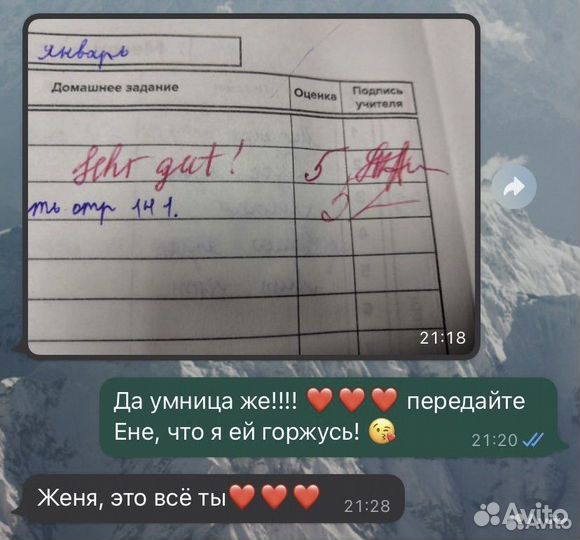 январь
Домашнее задание
Оценка
Подпись
учителя
Sehr gut! 5
ть стр 141.
21:18
Да умница же!!!! ❤️❤️❤️ передайте
Ене, что я ей горжусь! 😘
21:20
Женя, это всё ты❤️❤️❤️
21:28
Avito